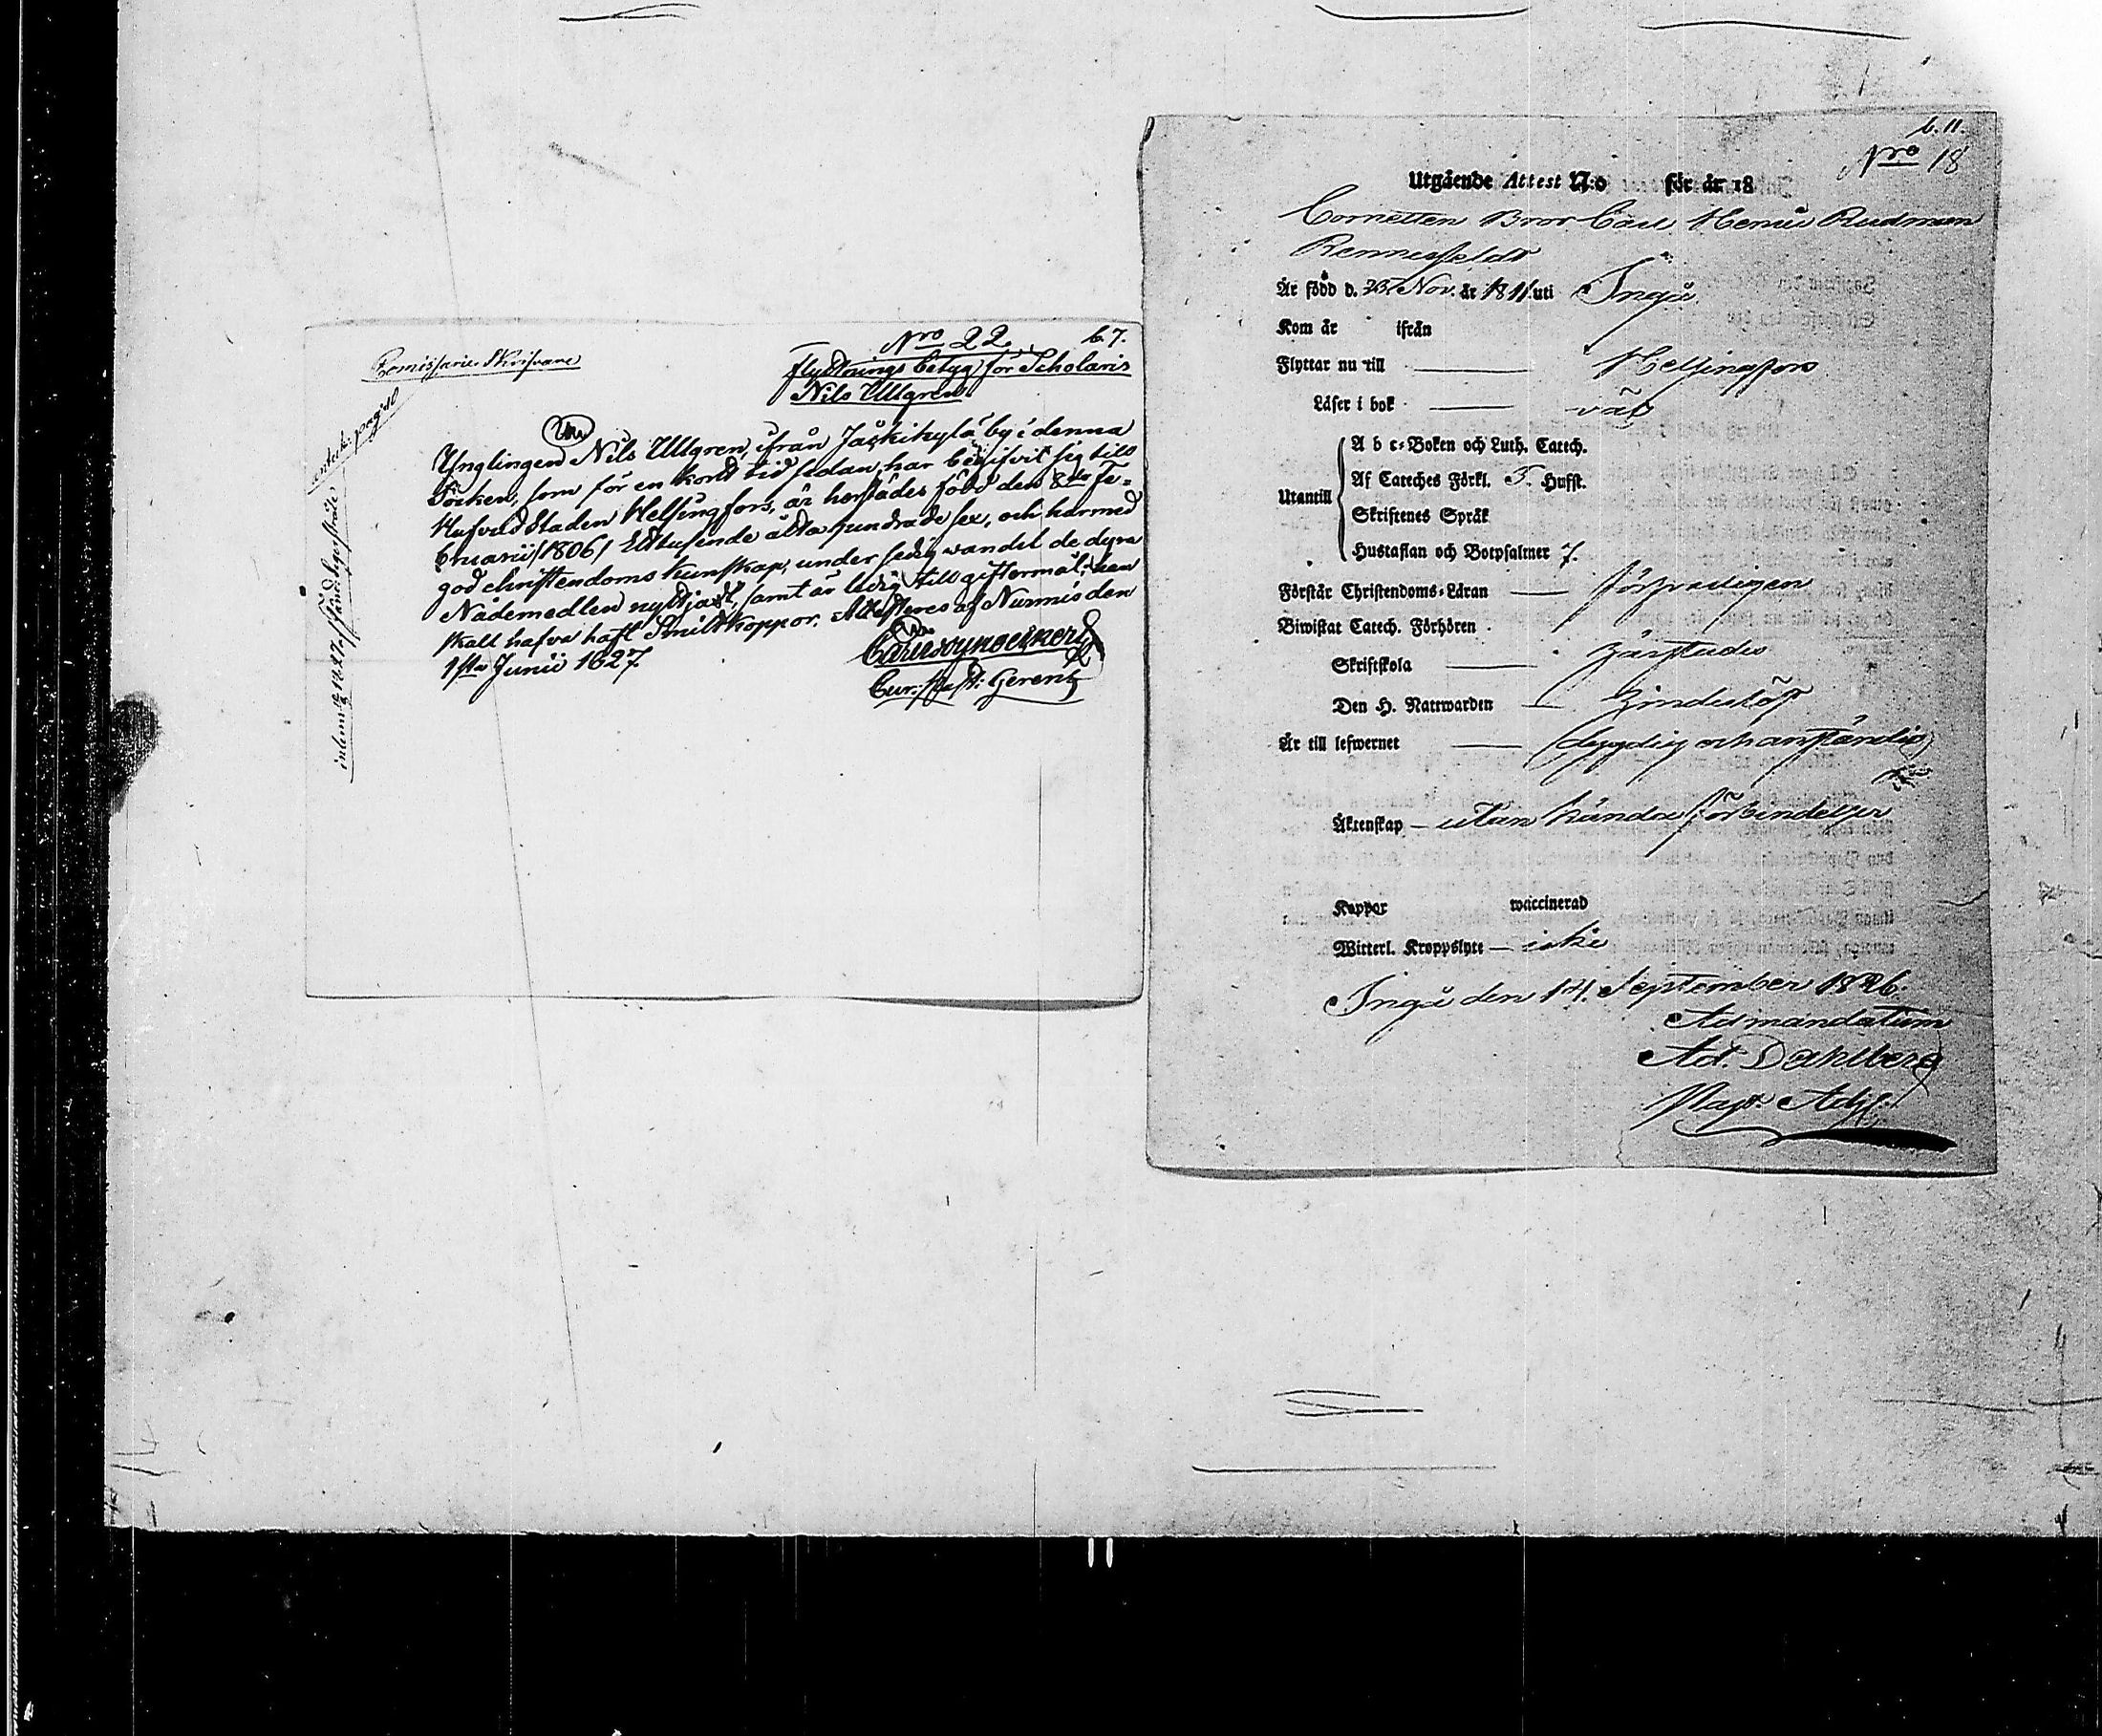 Nro 22. b.7.
Flyttnings betyg för Scholaris
Nils Ullgren.
Ynglingen Nils Ullgren, ifrån Jäskikylä by i denna
Socken, som för en kort tid sedan har begifvit sig till
Hufvud Staden Helsingfors, är herstädes född den 8de Fe-
bruarii /1806/ Ettusende åtta hundrade sex, och har med
god christendoms kunskap, under sedig wandel de dyra
Nådemedlen nyttjadt, samt är ledig till giftermål; han
skall hafva haft Smittkoppor. Attesteres af Nurmis den
1sta Junii 1827.
Cur: Past: Gerent
b. 11.
Nro 18
Utgående Attest N:o för år 18
Cornetten Bror Carl Rudman
År född d. 23. Nov. år 1811. uti Ingå
Kom år ifrån
Flyttar nu till Helsingfors
Läser i bok väl
Utantill
A b c-Boken och Luth. Catech.
Af Cateches Förkl. 5. Hufst.
Skriftenes Språk
Hustaflan och Botpsalmer 7.
Förstår Christendoms-Läran försvarligen
Biwistat Catech. Förhören
Skriftskola härstädes
Den H. Nattwarden
Är till lefwernet dygdig och anständig
Äktenskap – utan kända förbindelser
Koppor waccinerad
Witterl. Kroppslyte – icke
Ingå den 14. September 1826.
Ad mandatum
Ad. Dahlberg
Past. Adj.